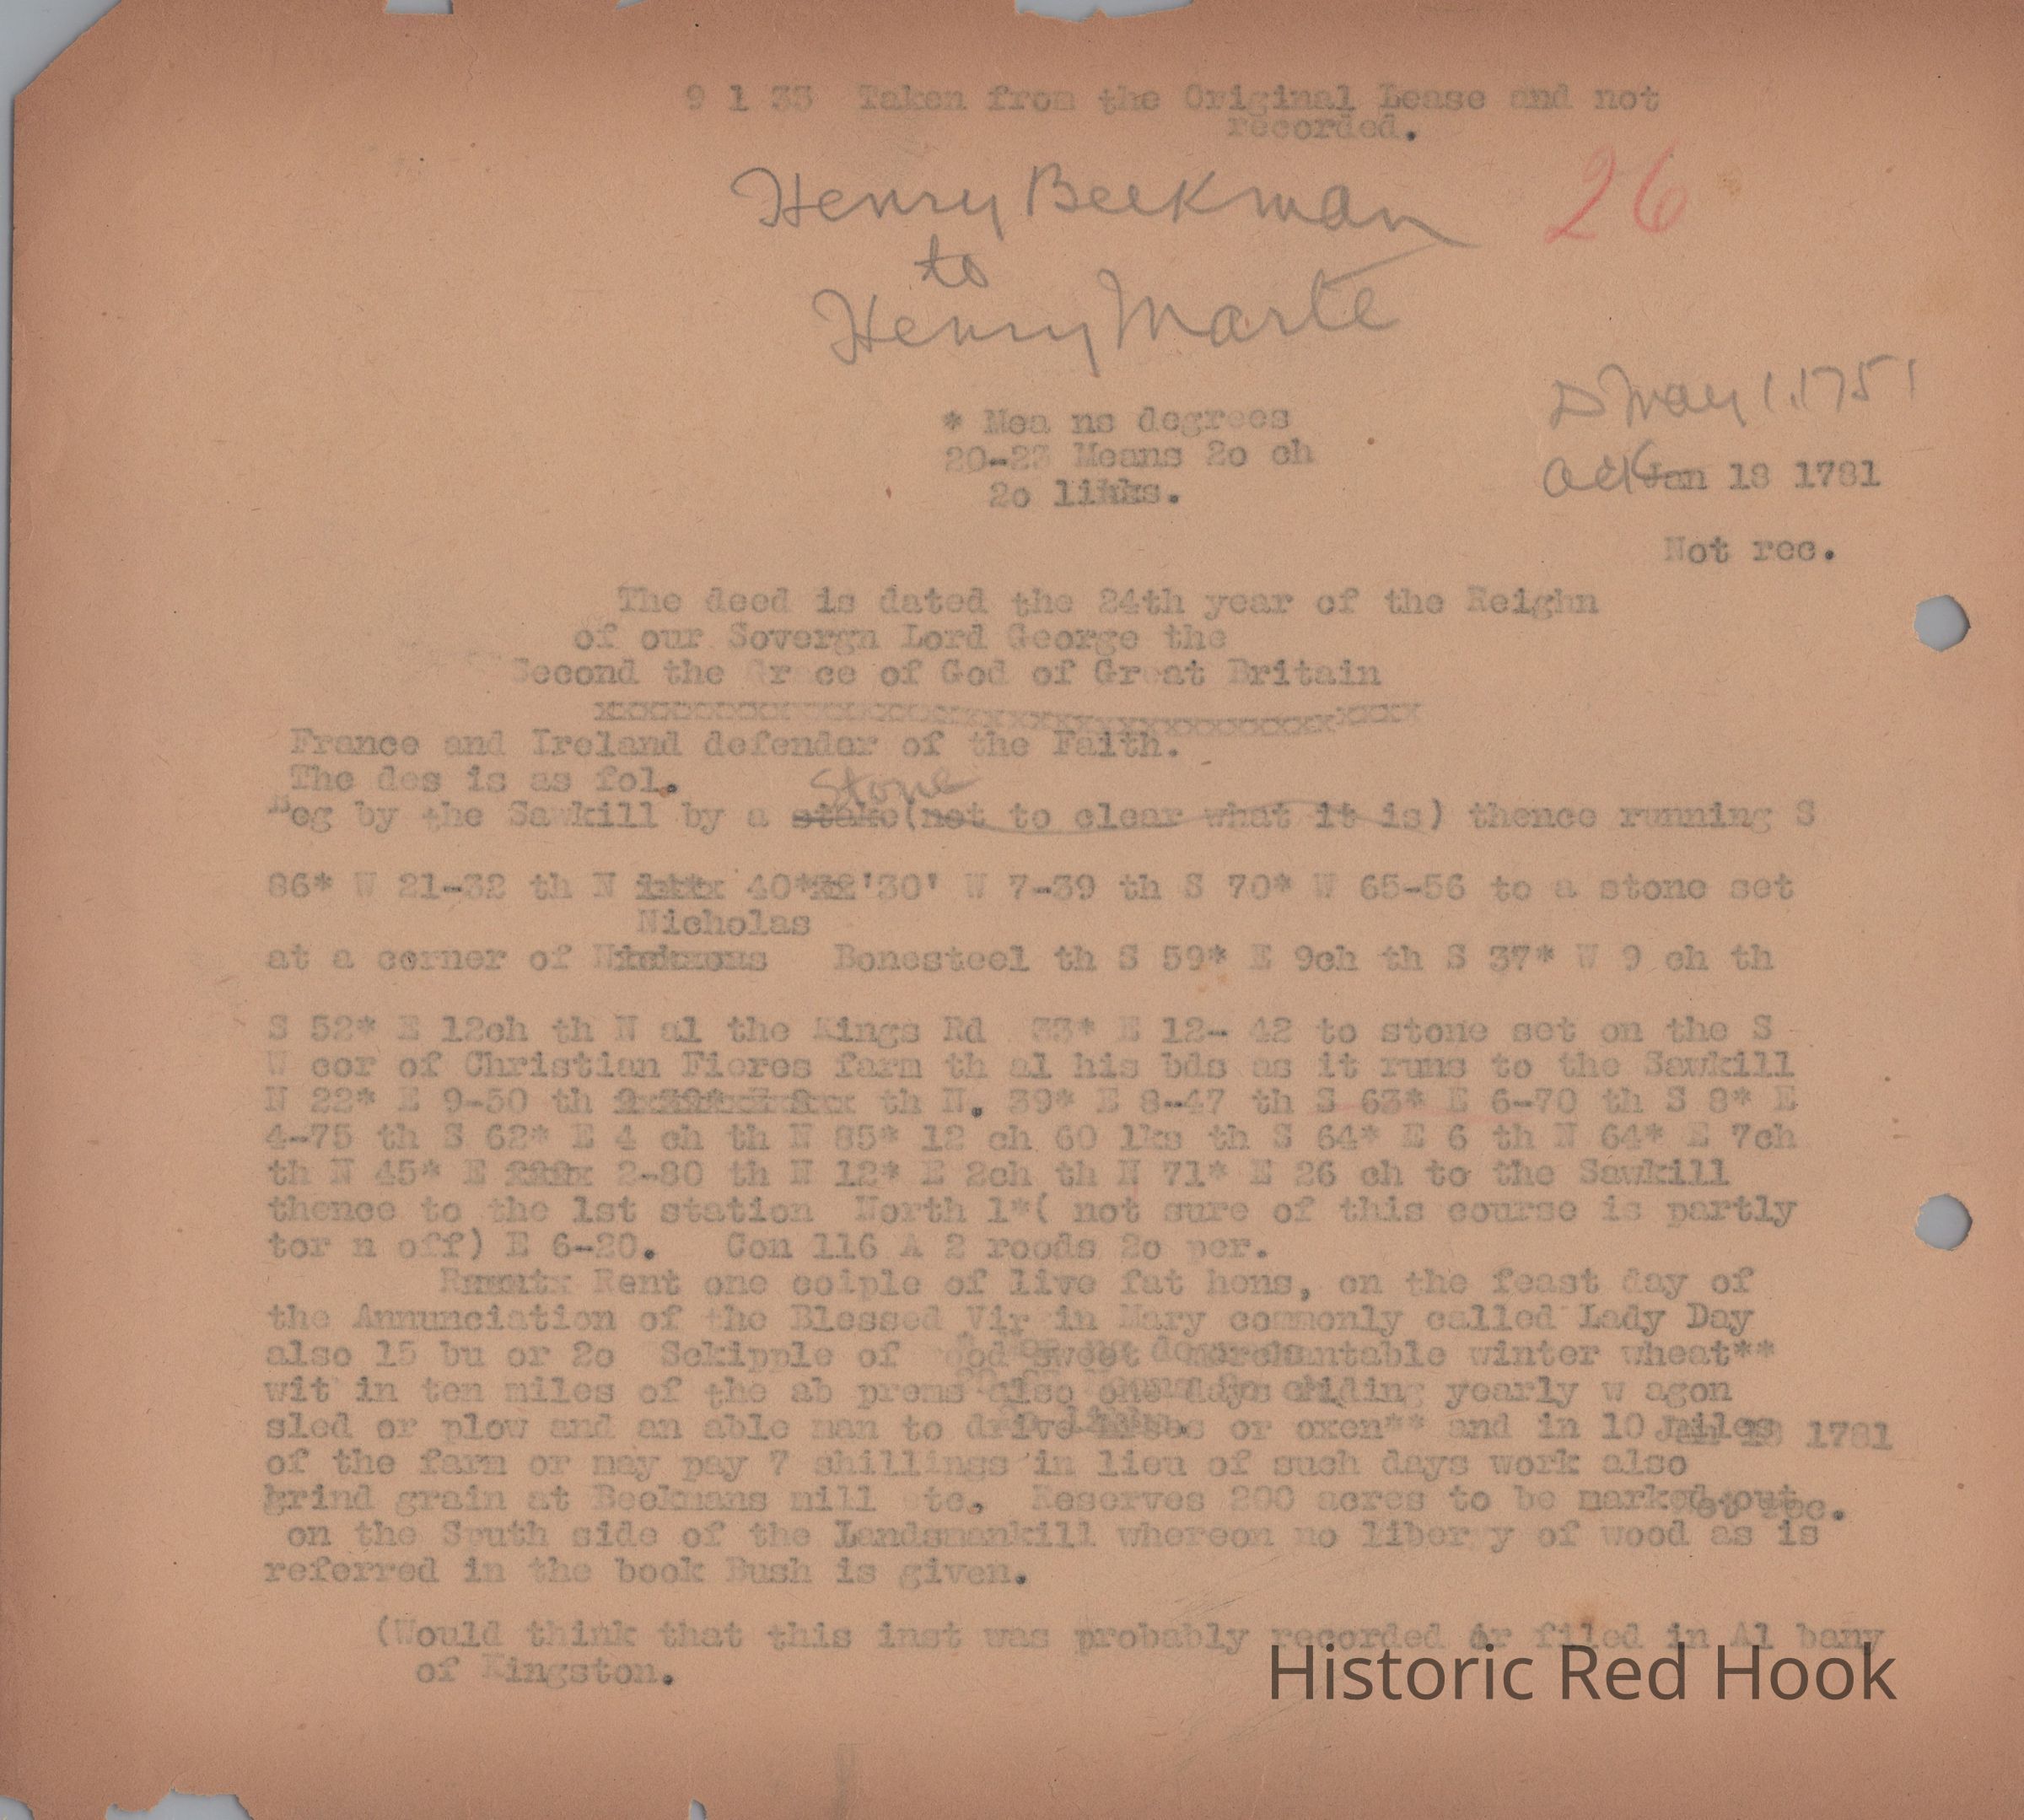 9 1 33 Taken from the Original Lease and not
recorded.
Henry Beekman 26
to
Henry Marte
D May 1. 1751
* Mea ns degrees
20-23 Means 2o ch
2o links.
ack Jan 18 1781
Not rec.
The deed is dated the 24th year of the Reighn
of our Sovergn Lord George the
Second the Gr ce of God of Great Britain
France and Ireland defender of the Faith.
The des is as fol.
Stone
Beg by the Sawkill by a stake(not to clear what it is) thence running S
86* W 21-32 th N 40* 30' W 7-39 th S 70* W 65-56 to a stone set
Nicholas
at a corner of Bonesteel th S 59* E 9ch th S 37* W 9 ch th
S 52* E 12ch th N al the Kings Rd 33* E 12- 42 to stone set on the S
W cor of Christian Fieres farm th al his bds as it runs to the Sawkill
N 22* E 9-50 th th N. 39* E 8-47 th S 63* E 6-70 th S 8* E
4-75 th S 62* E 4 ch th N 85* 12 ch 60 lks th S 64* E 6 th N 64* E 7ch
th N 45* E 2-80 th N 12* E 2ch th N 71* E 26 ch to the Sawkill
thence to the 1st station North 1*( not sure of this course is partly
tor n off) E 6-20. Con 116 A 2 roods 2o per.
Rent one coiple of live fat hens, on the feast day of
the Annunciation of the Blessed Vir in Mary commonly called Lady Day
also 15 bu or 2o Sckipple of ood sweet merchantable winter wheat**
wit in ten miles of the ab prems also one days riding yearly w agon
sled or plow and an able man to drive horses or oxen** and in 10 miles
Jan 18 1781
of the farm or may pay 7 shillings in lieu of such days work also
grind grain at Beekmans mill etc. Reserves 200 acres to be marked out
ot rec.
on the South side of the Landsmankill whereon no liber y of wood as is
referred in the book Bush is given.
(Would think that this inst was probably recorded or filed in Al bany
of Kingston.
Historic Red Hook